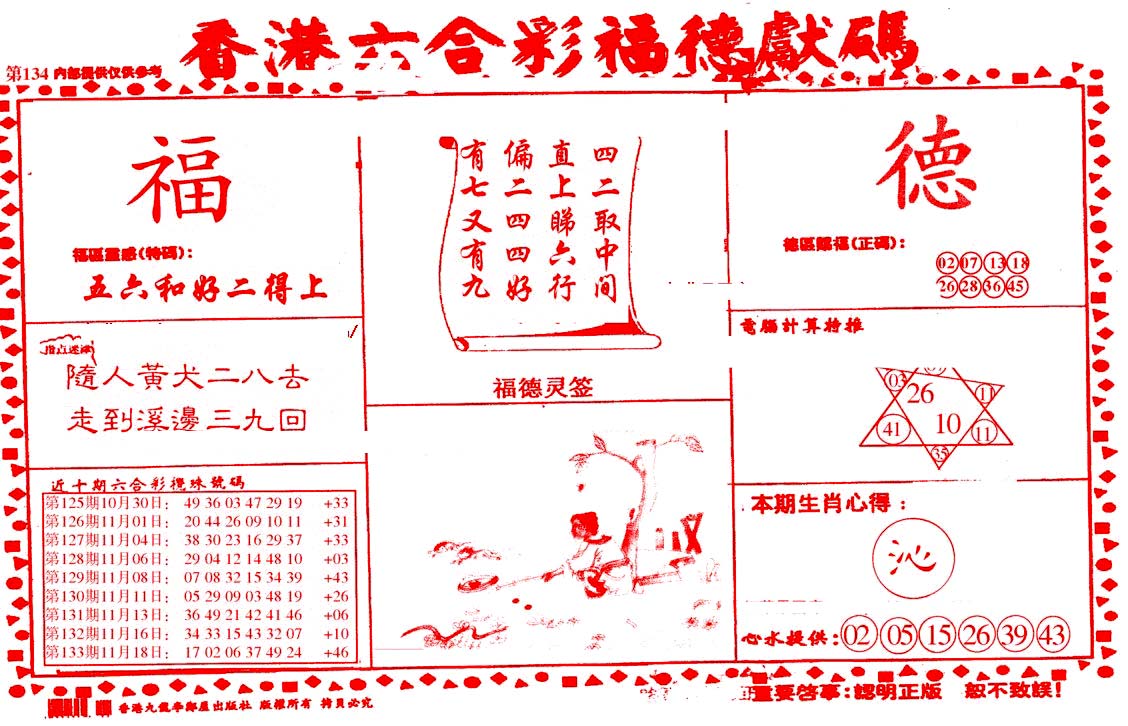 香港六合彩福德獻碼
第134 内部提供仅供参考
福
福區靈感(特碼):
五六和好二得上
指点迷津
隨人黃犬二八去
走到溪邊三九回
近十期六合彩攪珠號碼
第125期10月30日: 49 36 03 47 29 19 +33
第126期11月01日: 20 44 26 09 10 11 +31
第127期11月04日: 38 30 23 16 29 37 +33
第128期11月06日: 29 04 12 14 48 10 +03
第129期11月08日: 07 08 32 15 34 39 +43
第130期11月11日: 05 29 09 03 48 19 +26
第131期11月13日: 36 49 21 42 41 46 +06
第132期11月16日: 34 33 15 43 32 07 +10
第133期11月18日: 17 02 06 37 49 24 +46
四二取中间
直上睇六行
偏二四四好
有七又有九
福德灵签
德
德區賜福(正碼):
02 07 13 18
26 28 36 45
電腦計算特推
03
26
11
41
10
11
35
本期生肖心得:
沁
心水提供: 02 05 15 26 39 43
重要啓事:認明正版 恕不致誤!
版權所有 拷貝必究